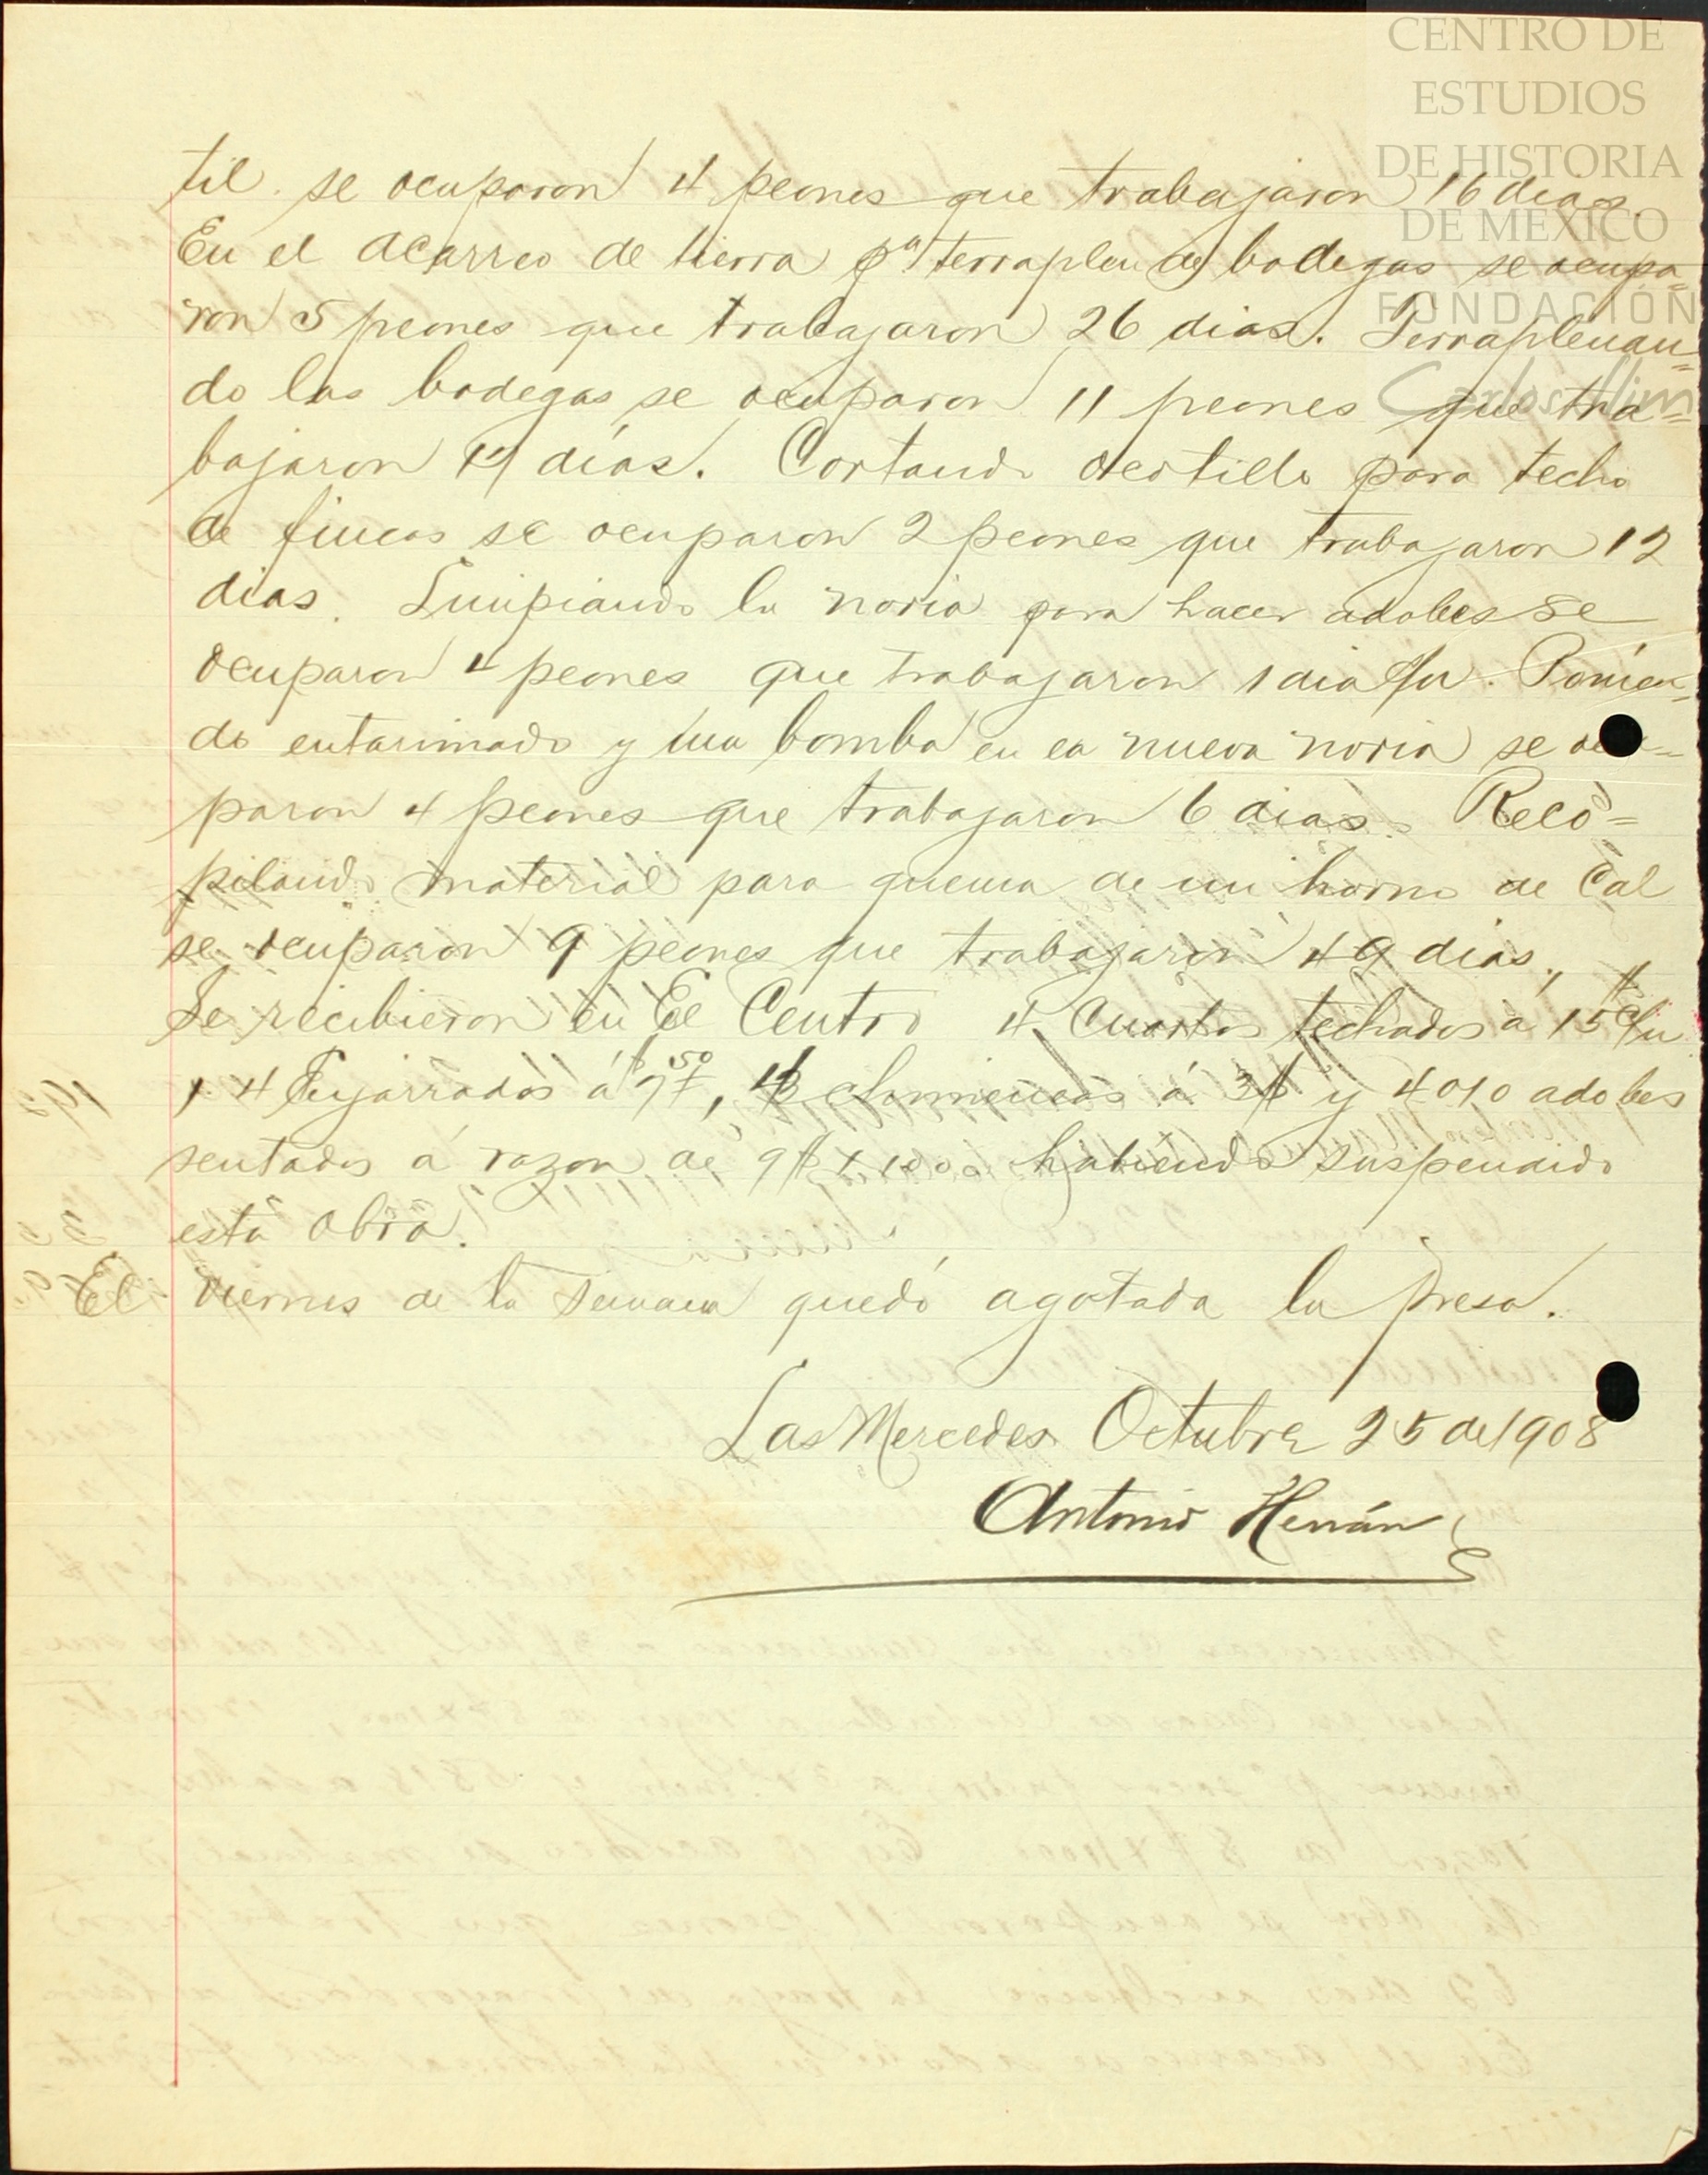 CENTRO DE
ESTUDIOS
DE HISTORIA
DE MÉXICO
FUNDACIÓN
Carlos Slim
til se ocuparon 4 peones que trabajaron 16 dias.
En el acarreo de tierra pª terraplen de bodegas se ocupa=
ron 5 peones que trabajaron 26 dias. Terraplenan=
do las bodegas se ocuparon 11 peones que tra=
bajaron días. Cortando ocotillo para techo
de fincas se ocuparon 2 peones que trabajaron 12
dias. Limpiando la noria para hacer adobes se
ocuparon 4 peones que trabajaron 1 dia c/u. Ponien=
do entarimado y una bomba en la nueva noria se ocu=
paron 4 peones que trabajaron 6 dias. Reco=
pilando material para quema de un horno de Cal
se ocuparon 9 peones que trabajaron 49 dias.
Se recibieron en El Centro 4 Cuartos techados á 15$ c/u
, 4 Enjarrados á 7$50, chimeneas á 3$ y 4010 adobes
sentados á razon de 9$ x 1000 habiendo suspendido
esta obra.
El viernes de la semana quedó agotada la presa.
Las Mercedes Octubre 25 de 1908
Antonio Hernán